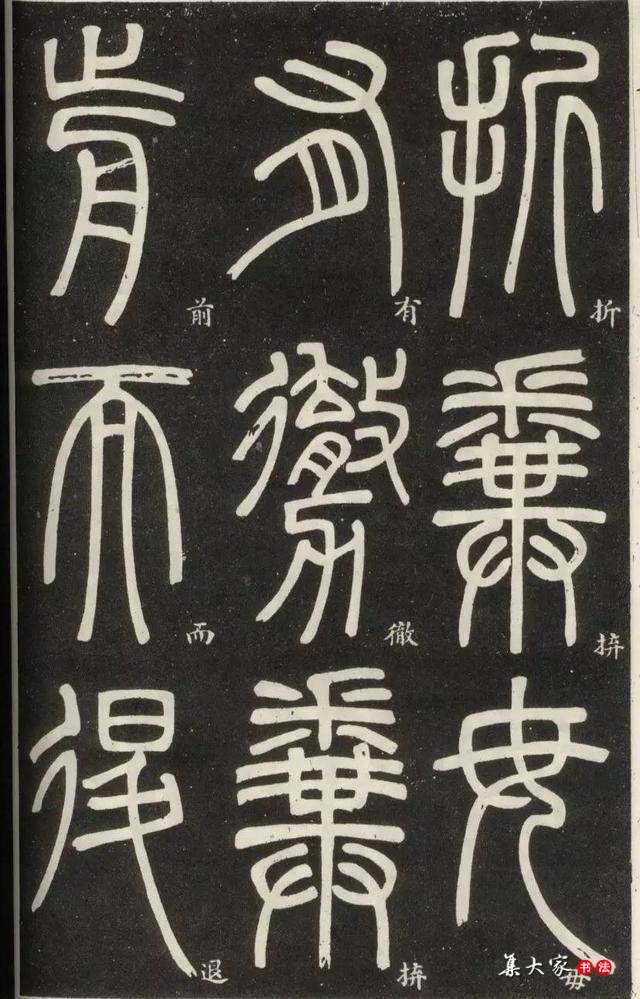 折拚毋
有徹拚
前而退
集大家书法